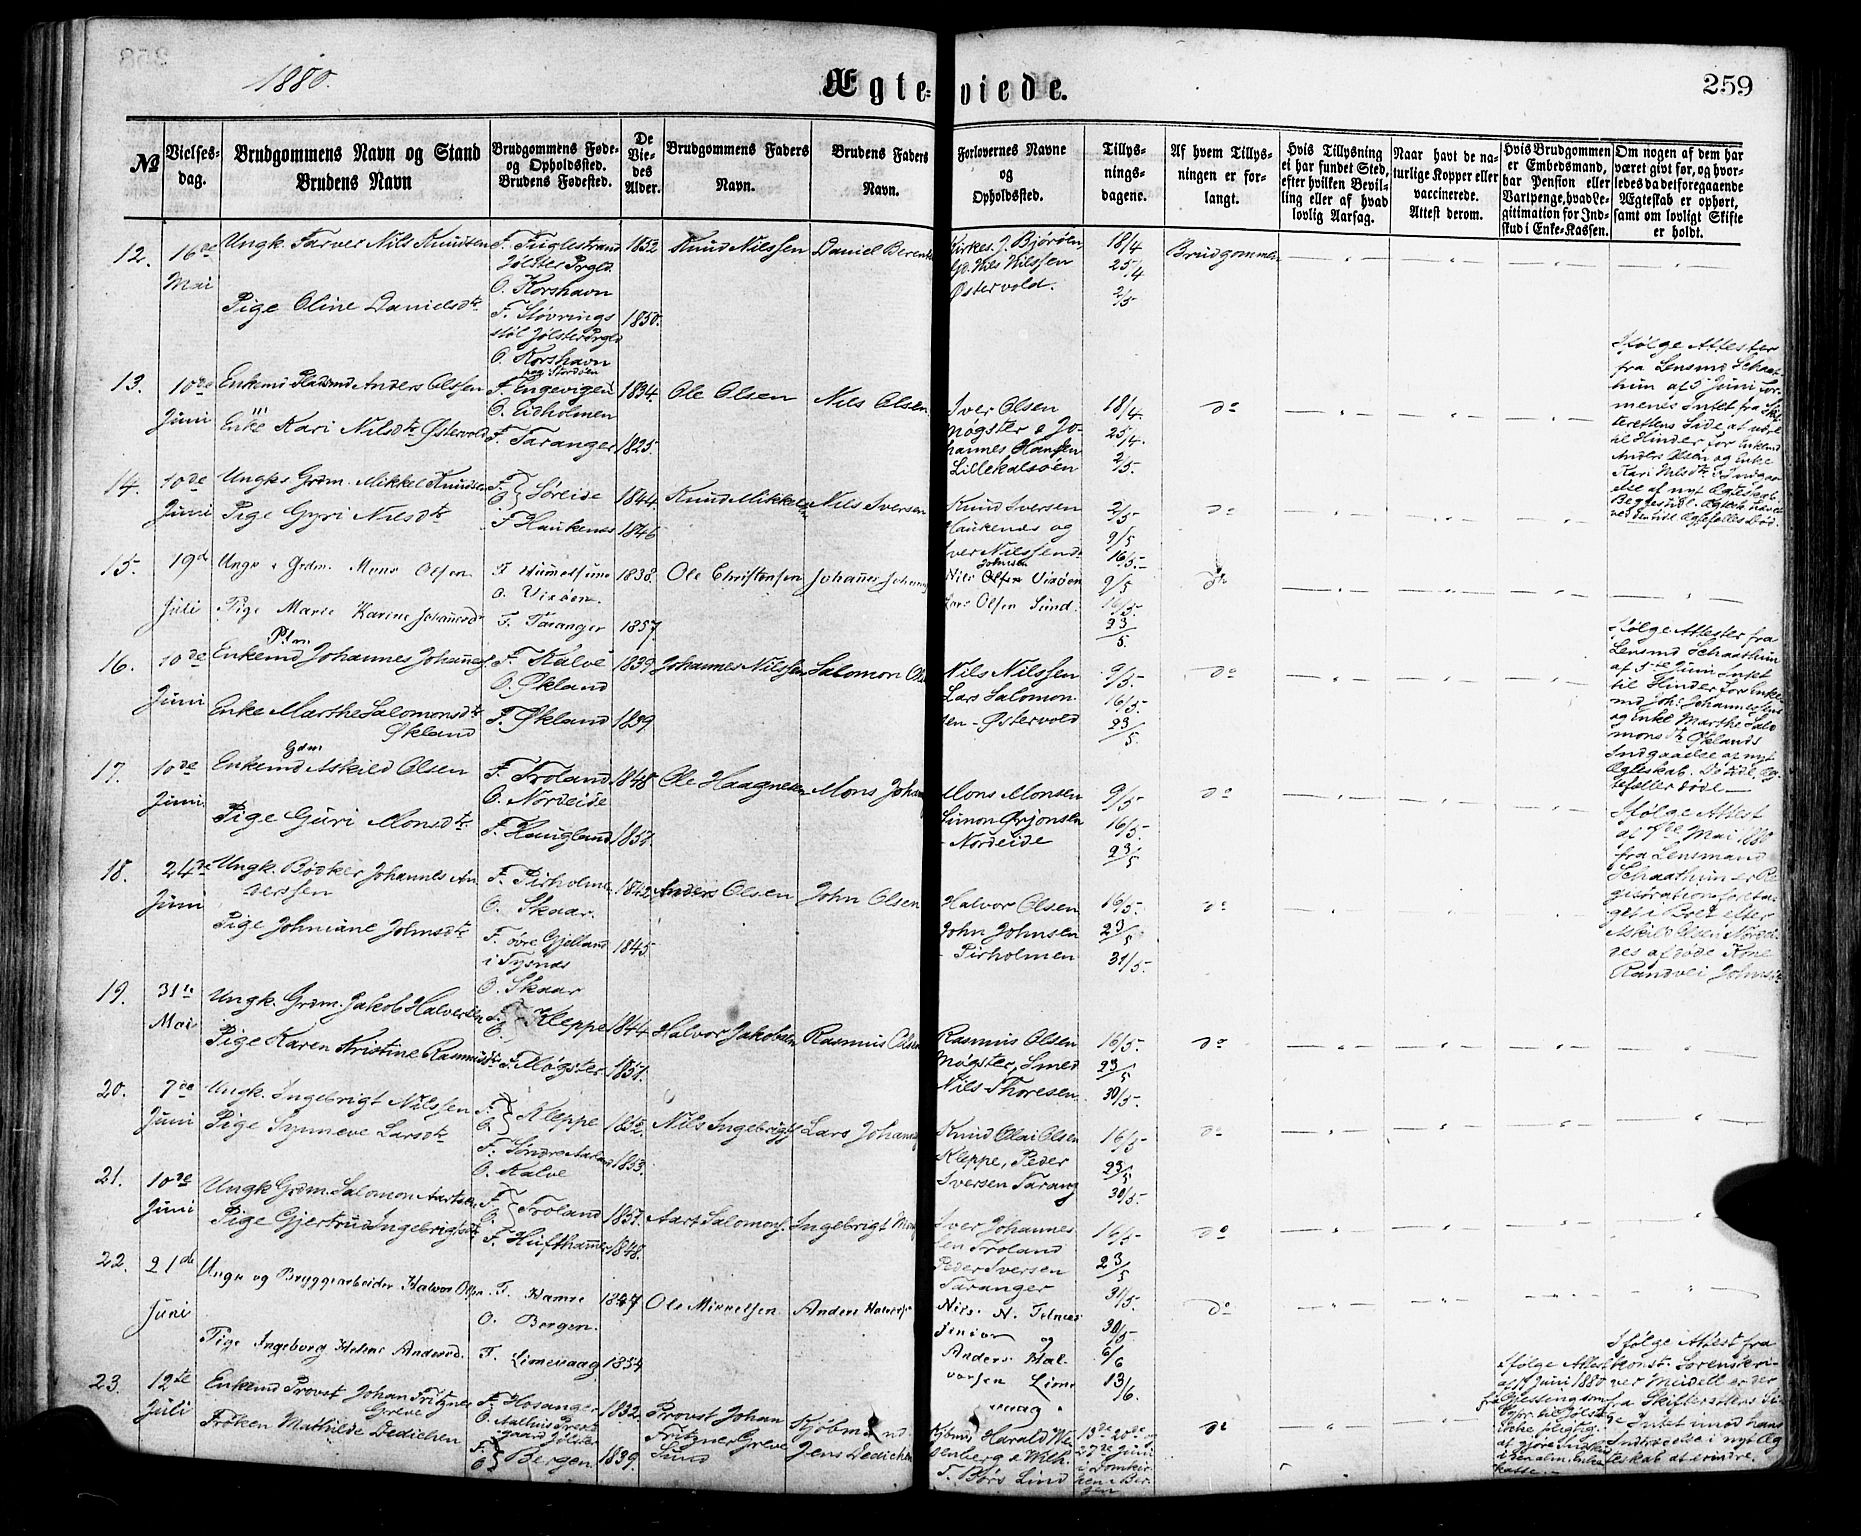 1880.
Ægte-viede.
259
№
Vielses-dag.
Brudgommens Navn og Stand
Brudens Navn
Brudgommens Føde- og Opholdssted.
Brudens Fødested.
De Vie-des Alder.
Brudgommens Faders Navn.
Brudens Faders Navn.
Forlovernes Navne og Opholdssted.
Tillys-nings-dagene.
Af hvem Tillys-ningen er for-langt.
Hvis Tillysning ei har fundet Sted, efter hvilken Bevil-ling eller af hvad lovlig Aarsag.
Naar havt de na-turlige Kopper eller vaccinerede. Attest derom.
Hvis Brudgommen er Embedsmand, har Pension eller Vartpenge, hvad Le-gitimation for Ind-skud i Enke-Kassen.
Om nogen af dem har været gift før, og hvor-ledes da det foregaaende Ægteskab er ophørt, samt om lovligt Skifte er holdt.
12. 16de Mai
Ungk. Farver Nils Knudsen
F. Fuglestrand Jølster Prgld. O. Korshavn
1852
Knud Nilssen
Daniel Berents
Kirkes. J. Bjørøen Gd. Nils Nilssen Østervold.
18/4 25/4 2/5
Brudgommen
Pige Oline Danielsdtr
F. Støvrings støl Jølster Prgld O. Korshavn
1850.
13. 10de Juni
Enkemd Pladsmd Anders Olssen
F. Engevigen O. Eidholmen
1834.
Ole Olsen
Nils Olsen
Iver Olsen Møgster & Johannes Hansen Lillekalsøen
18/4. 25/4. 2/5.
do
Enke Kari Nilsdtr Østervold
F. Taranger
1825.
Ifølge Attester fra Lensmd Schaathun af 5 Juni formenes Intet fra Skifterettens Side at være til Hinder for Enkemd Anders Olsen og Enke Kari Nilsdtr i Indgaaelse af nyt Ægteskab.
14. 10de Juni
Ungk. Grdm. Mikkel Knudsen
F. O. Søreide
1844.
Knud Mikkelsen
Nils Iversen
Knud Iversen Haukenæs og Iver Nilssen
2/5 9/5 16/5.
do
Pige Gyri Nilsdtr
F. Haukenes
1846
15. 19d Juli
Ungk. & Grdm. Mons Olsen
F. Hummelsund O. Vixøen.
1838.
Ole Christensen
Johannes Johannes
Nils Olsen Vixøen Lars Olsen Sund.
9/5 16/5. 23/5.
do
Pige Marie Karine Johannesdtr
F. Taranger
1857.
16. 10de Juni
Enkemd Plm Johannes Johannes
F. Kalve O. Økland
1839.
Johannes Nilssen
Salomon Ols
Nils Nilssen Lars Salomonsen - Østervold
9/5. 16/5. 23/5.
do
Enke Marthe Salomonsdtr Økland
F. Økland
1839
Ifølge Attester fra Lensmd Schaathun af 5te Juni Intet til Hinder for Enkemd Joh: Johannessens og Enke Marthe Salomonsdtr Øklands Indgaaelse af nyt Ægteskab.
17. 10de Juni
Enkemd Gdm Askild Olsen
F. Froland O. Nordeide
1848.
Ole Haagnesen
Mons Johan
Mons Monsen Simon Ørjonsen - Nordeide
9/5. 16/5. 23/5
do
Pige Guri Monsdtr
F. Haugland
1857.
Ifølge Attest af Mai 1880 fra Lensmand Schaathun er Registration foretaget i Boet efter Askild Olsen Nordeides afdøde Kone Randvei Johnsdtr
18. 24de Juni
Ungk. Bødker Johannes Anderssen
F. Pirholmen O. Skaar.
1842.
Anders Olsen
John Olsen
Halvor Olsen John Johnsen - Pirholmen
16/5. 23/5 31/5.
do
Pige Johniane Johnsdtr
F. øvre Gjelland i Tysnæs O. Skaar
1845.
19. 31te Mai
Ungk. Grdm. Jakob Halvorsen
F. O. Kleppe
1844.
Halvor Jakobsen
Rasmus Olsen
Rasmus Olsen Møgster, Smed Nils Thoresen
16/5. 23/5 30/5.
do
Pige Karen Kristine Rasmusdtr
F. Møgster
1851.
20. 7de Juni
Ungk. Ingebrigt Nilssen
F. O. Kleppe
1852.
Nils Ingebrigts
Lars Johannes
Knud Olai Olsen Kleppe, Peder Iversen Tarang
16/5 23/5 30/5.
do
Pige Synneve Larsdtr
F. Søndre Aarland O. Kalve
1853.
21. 10de Juni
Ungk Grdm. Salomon Aartsen
F. O. Froland
1857.
Aart Salomons.
Ingebrigt M
Iver Johannessen Froland Peder Iversen Taranger
16/5. 23/5 31/5.
do
Pige Gjertrud Ingebrigtsdtr
F. Hufthammer
1848.
22. 21de Juni
Ungk og Bryggearbeider Halvor Olsen
F. Hamre O. Bergen.
1847
Ole Mikkelsen
Anders Halvors
Nils N. Telnæs Senior og Anders Halvorsen Limevaag
30/5 6/6 13/6.
do
Pige Ingeborg Helene Andersd.
F. Limevaag
1854
23. 12te Juli
Enkemd Provst Johan Fritzner Greve
F. Hosanger O. Aalhus Præstegaard Jølster
1832.
Provst Johan Fritzner Greve Sund
Kjøbmand Jens Dedichen
Kjøbmd Harald Wesenberg & Wilh. F. Børs Lind
13de 20de 27de Juni i Domkirken i Bergen
do
Frøken Mathilde Dedichen
F. O. Bergen
1839.
Ifølge Attest fra konst. Sorenskriver Meidell er der fra Skifterettens Side Intet imod hans Indtrædelse i nyt Ægteskab at erindre.